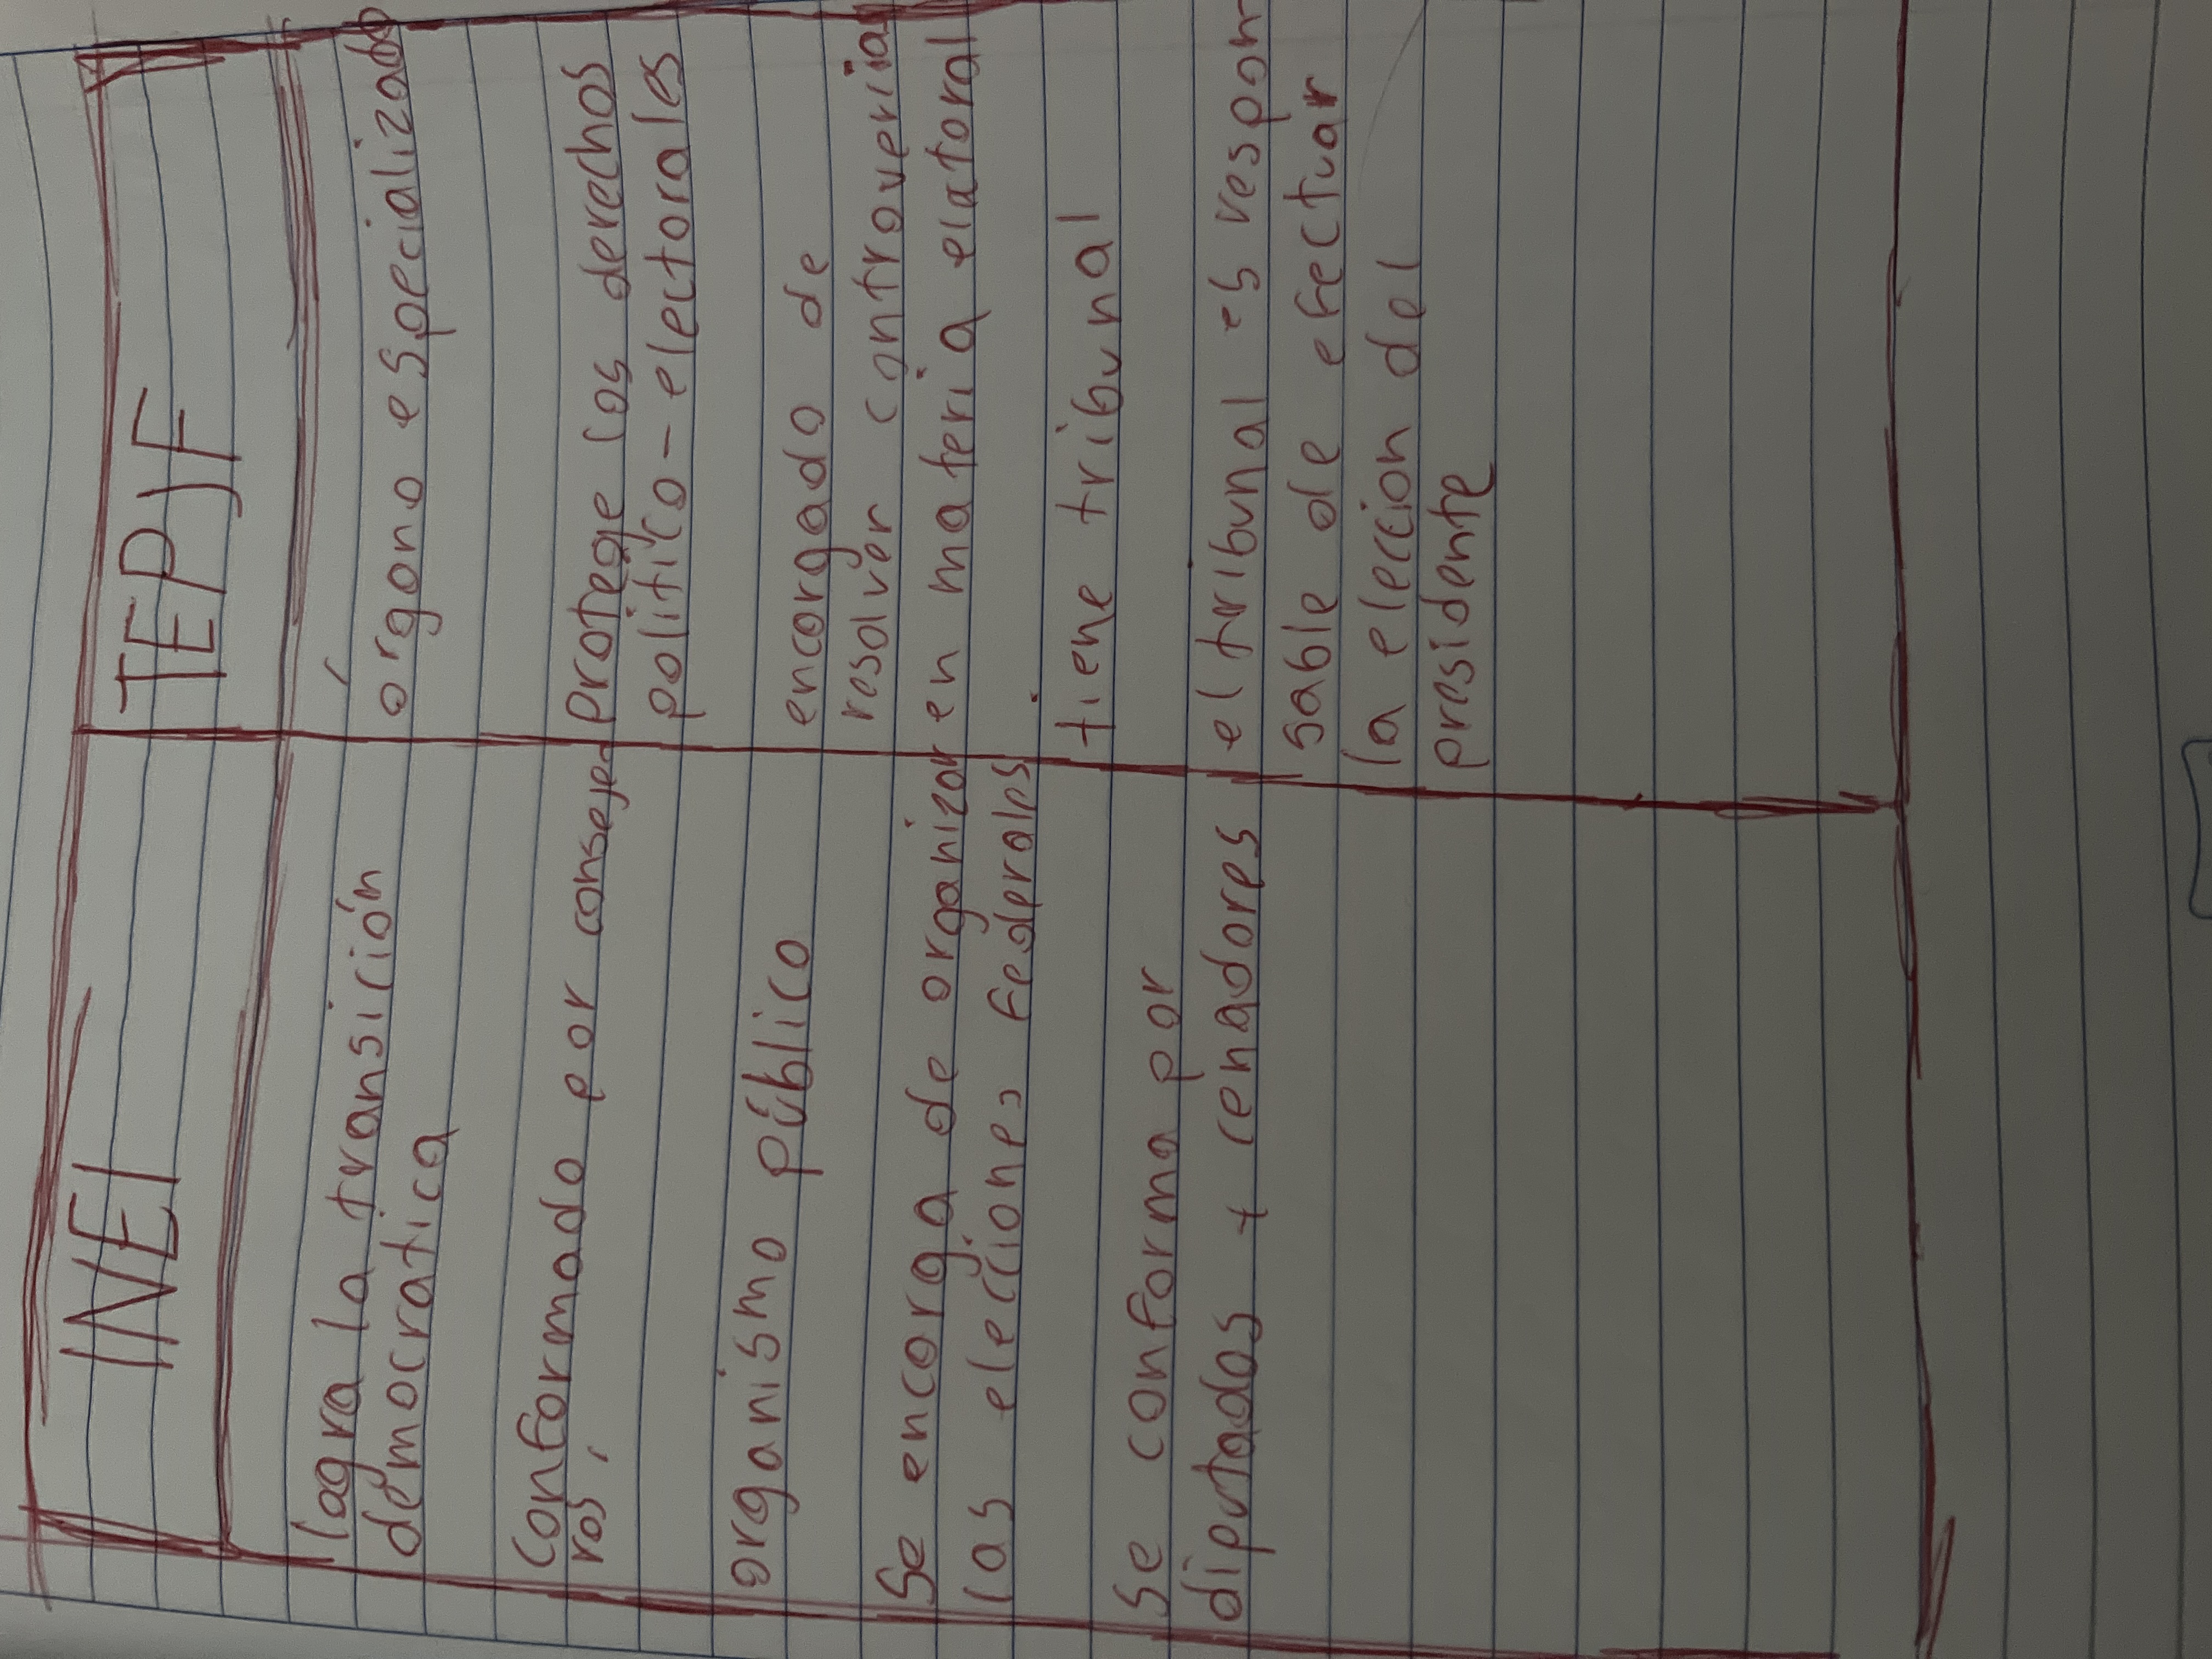 INE
logra la transición
democratica
Conformado por conseje-
ros,
organismo público
Se encarga de organizar
las elecciones federales
Se conforma por
diputados + cenadores
TEPJF
órgano especializado
protege los derechos
politico-electorales
encargado de
resolver controveria
en materia elatoral
tiene tribunal
el tribunal es respon
sable de efectuar
la eleccion del
presidente